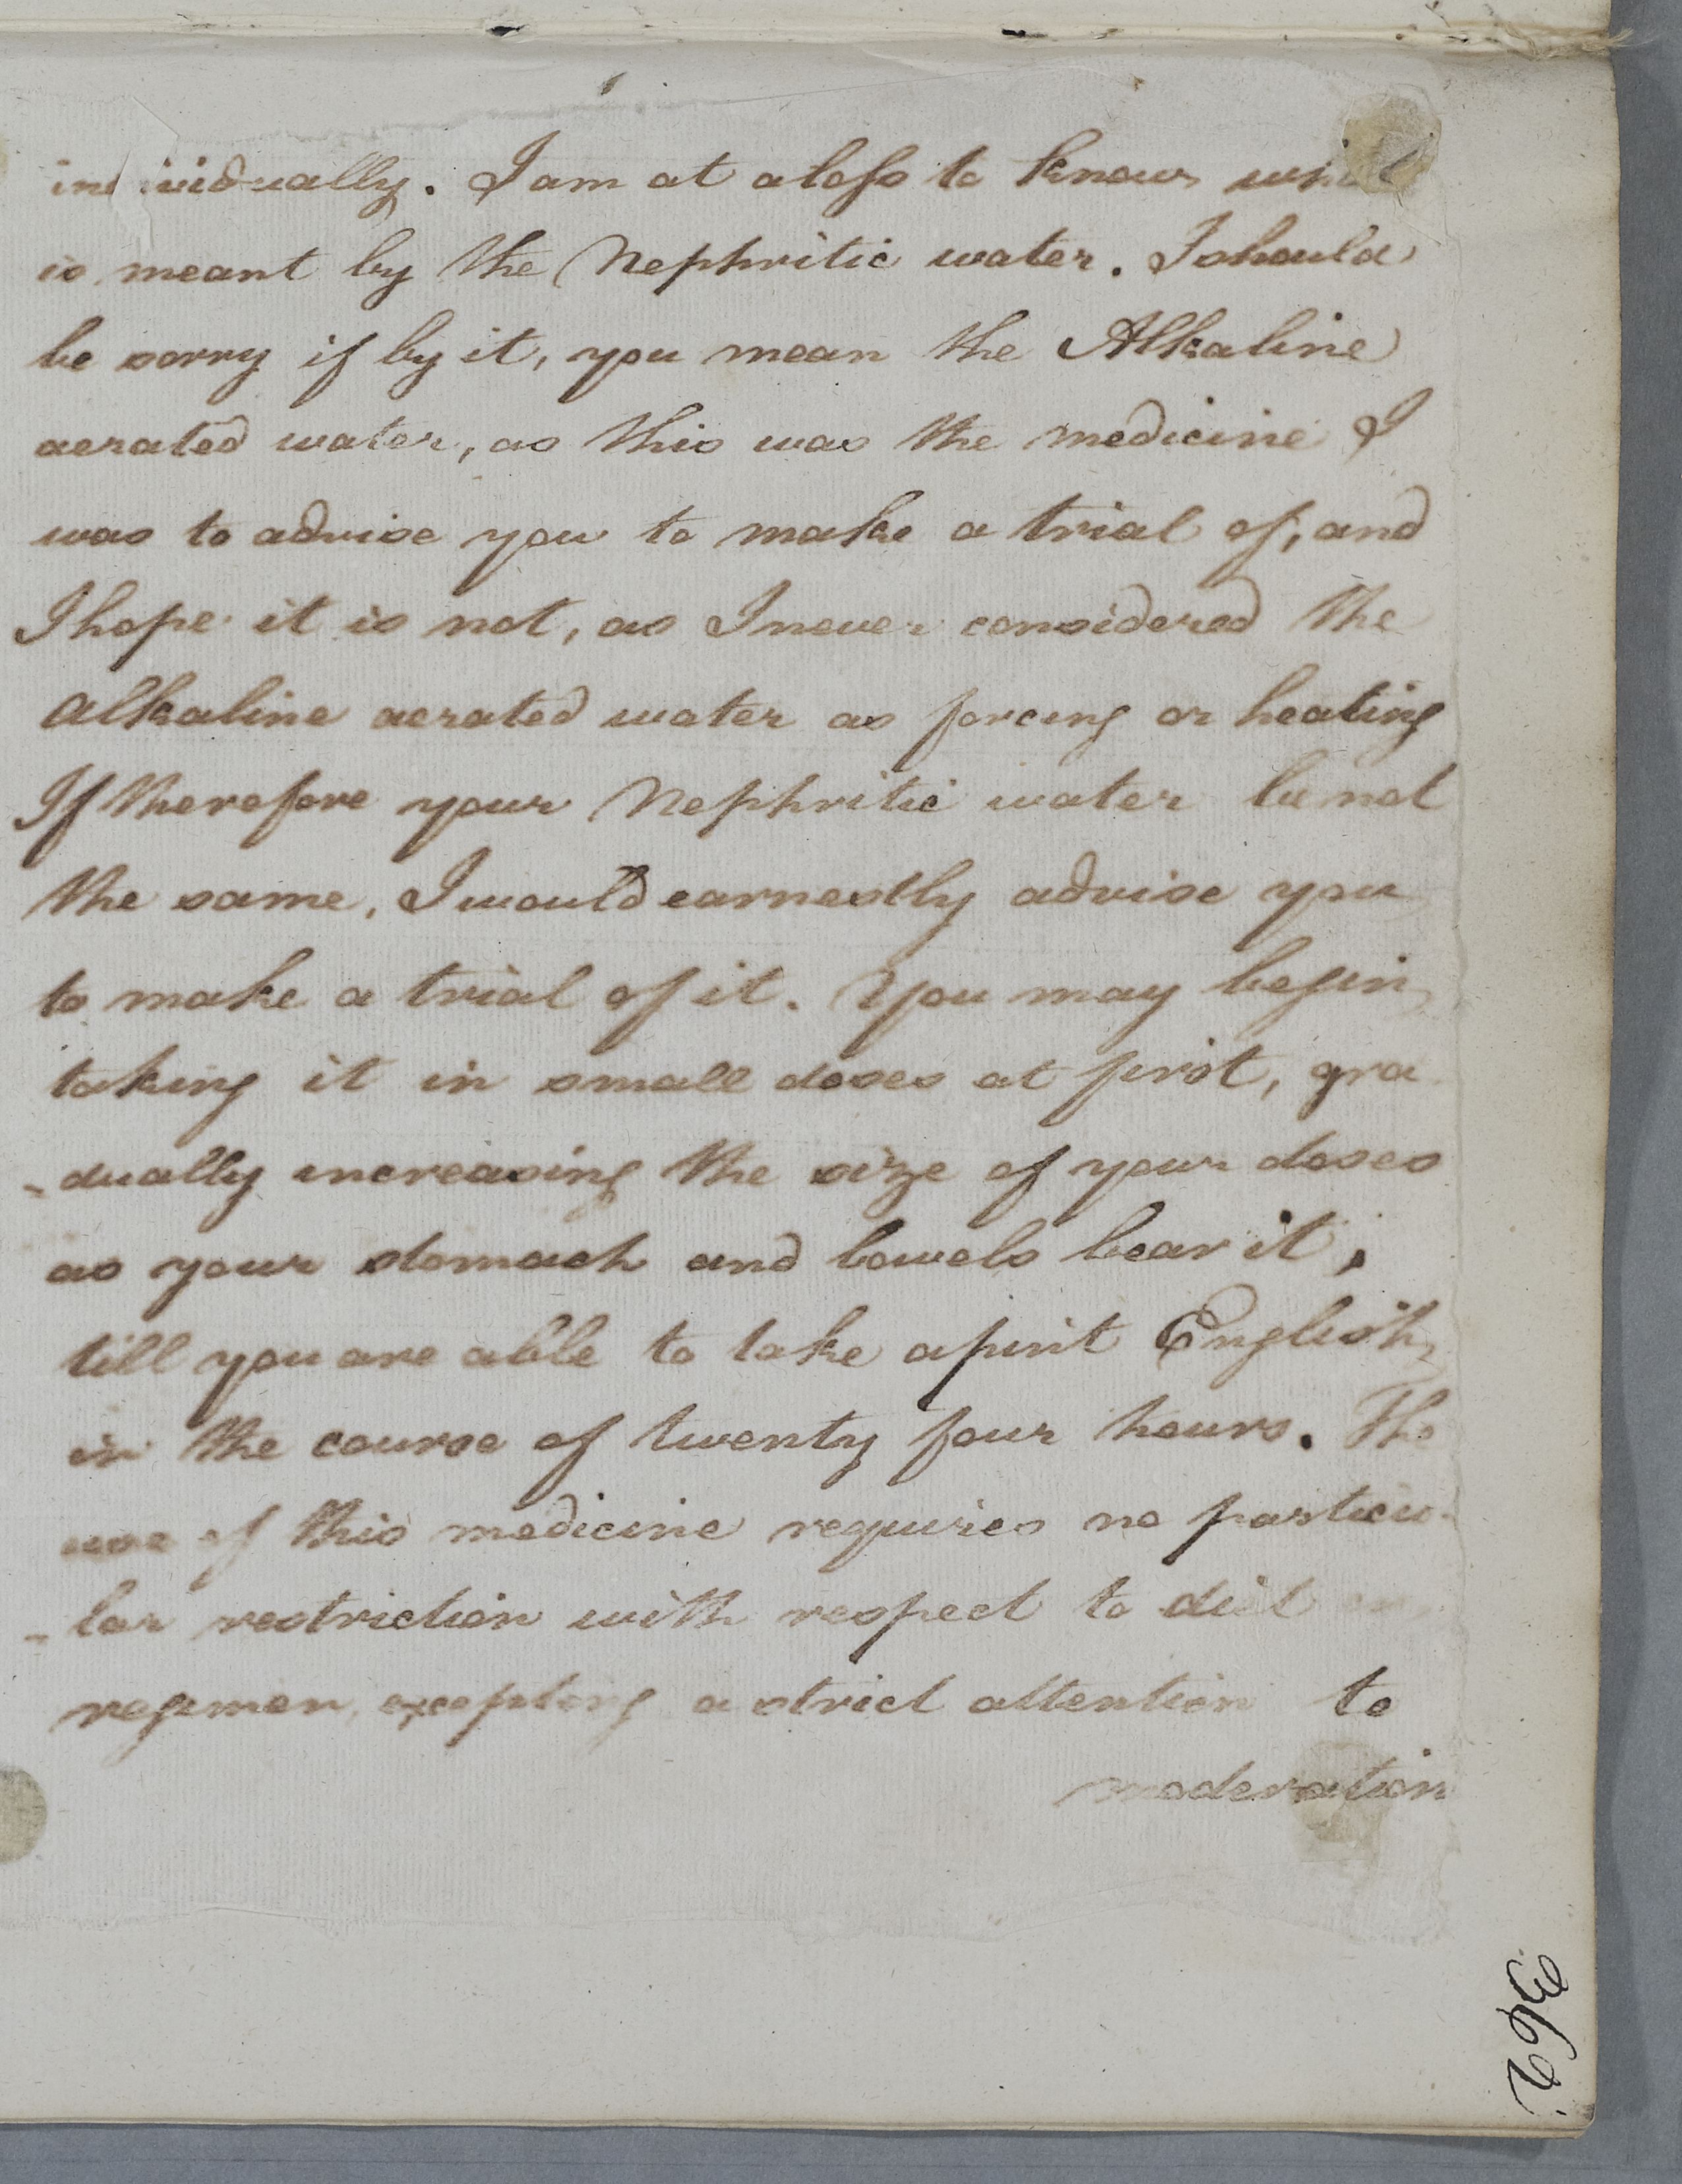 individually. I am at a loss to know what
is meant by the Nephritic water. I should
be sorry if by it, you mean the Alkaline
aerated water, as this was the medicine I
was to advise you to make a trial of, and
I hope it is not, as I never considered the
Alkaline aerated water as forcing or heating
If therefore your Nephritic water be not
the same, I would earnestly advise you
to make a trial of it. You may begin
taking it in small doses at first, gra
-dually increasing the size of your doses
as your stomach and bowels bear it,
till you are able to take a pint English
in the course of twenty four hours. The
use of this medicine requires no particu-
-lar restriction with respect to diet or
regimen, excepting a strict attention to
moderation
362.